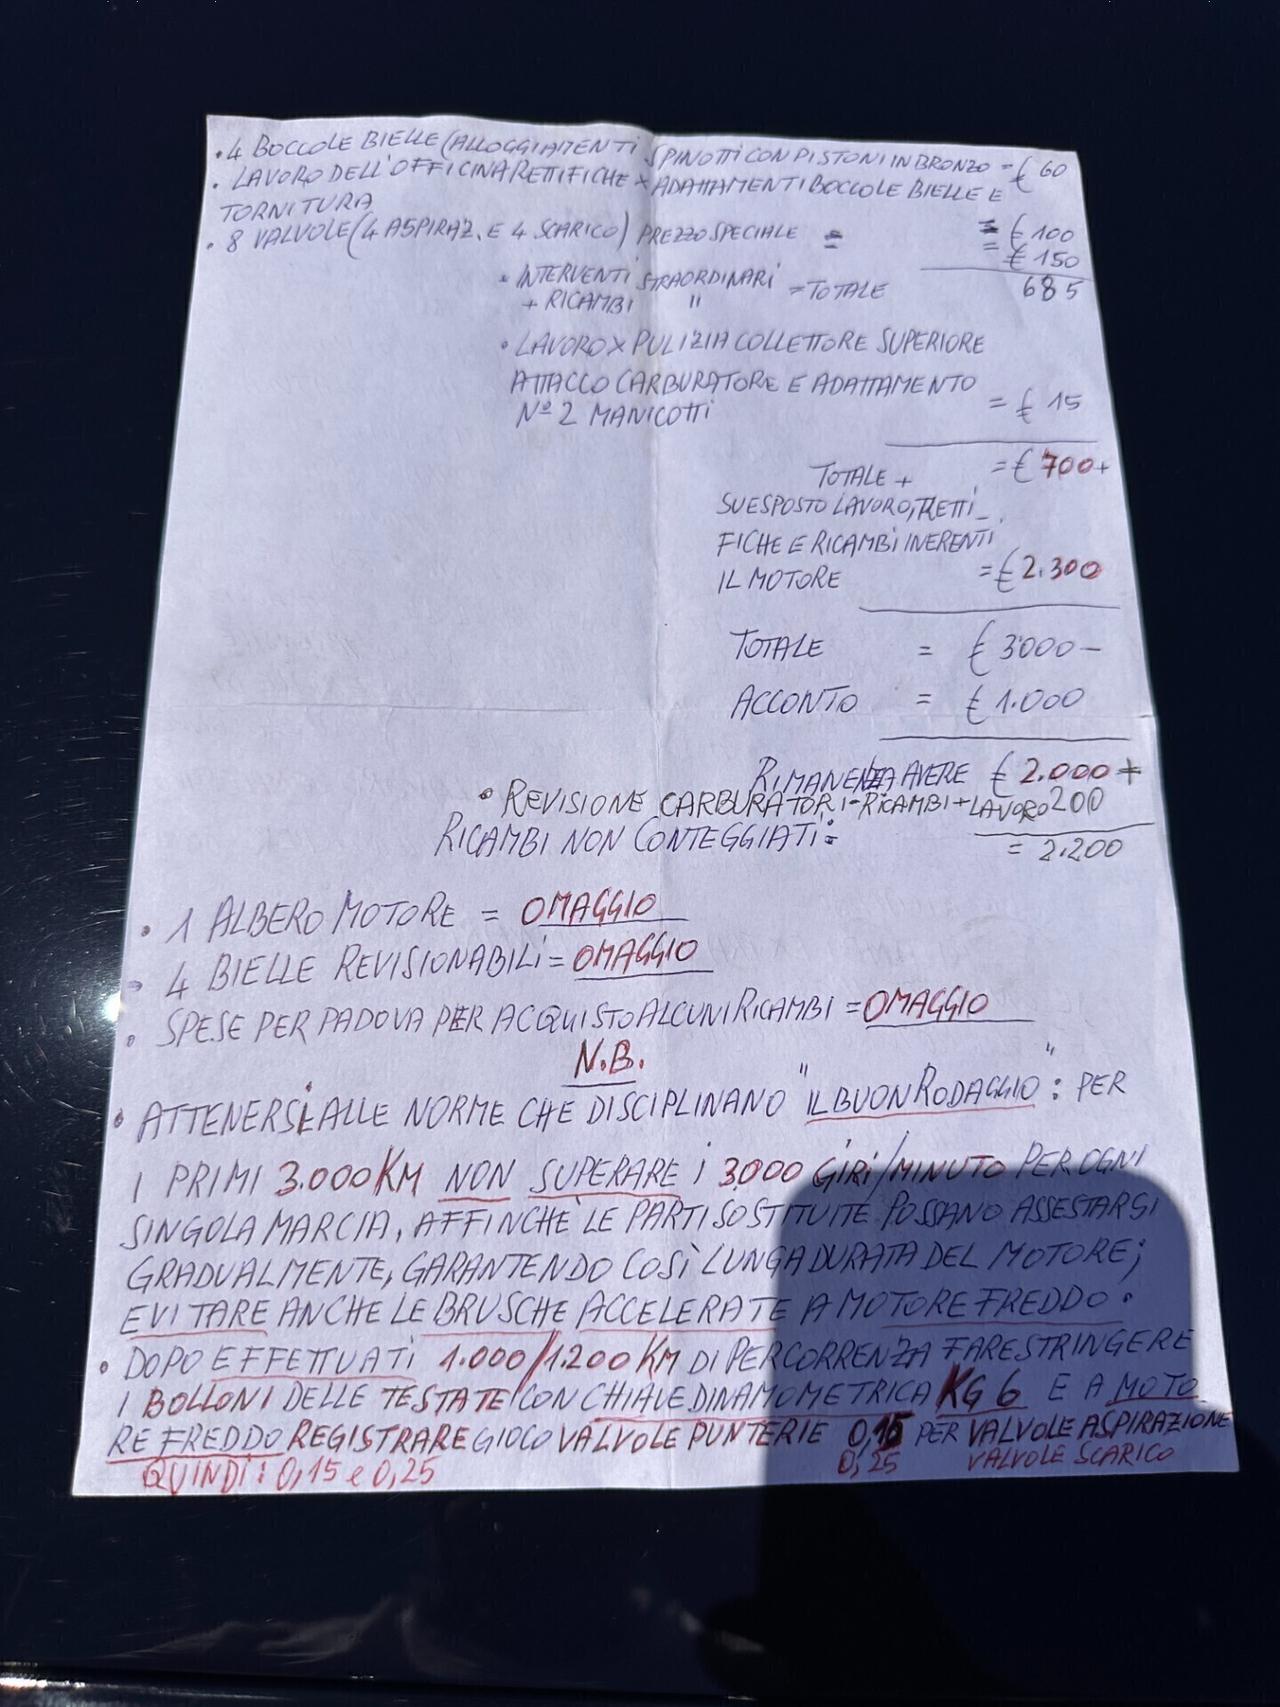 • 4 BOCCOLE BIELLE (ALLOGGIAMENTI SPINOTTI CON PISTONI IN BRONZO = € 60
• LAVORO DELL'OFFICINA RETTIFICHE × ADATTAMENTI BOCCOLE BIELLE E
TORNITURA = € 100
• 8 VALVOLE (4 ASPIRAZ. E 4 SCARICO) PREZZO SPECIALE = = € 150
• INTERVENTI STRAORDINARI = TOTALE 685
+ RICAMBI "
• LAVORO × PULIZIA COLLETTORE SUPERIORE
ATTACCO CARBURATORE E ADATTAMENTO
Nº 2 MANICOTTI = € 15
TOTALE + = € 700+
SUESPOSTO LAVORO, RETTI-
FICHE E RICAMBI INERENTI
IL MOTORE = € 2.300
TOTALE = € 3.000 -
ACCONTO = € 1.000
RIMANENZA AVERE € 2.000 +
• REVISIONE CARBURATORI - RICAMBI + LAVORO 200
RICAMBI NON CONTEGGIATI: = 2.200
• 1 ALBERO MOTORE = OMAGGIO
• 4 BIELLE REVISIONABILI = OMAGGIO
• SPESE PER PADOVA PER ACQUISTO ALCUNI RICAMBI = OMAGGIO
N.B.
• ATTENERSI ALLE NORME CHE DISCIPLINANO "IL BUON RODAGGIO": PER
I PRIMI 3.000 KM NON SUPERARE I 3000 GIRI/MINUTO PER OGNI
SINGOLA MARCIA, AFFINCHÈ LE PARTI SOSTITUITE POSSANO ASSESTARSI
GRADUALMENTE, GARANTENDO COSÌ LUNGA DURATA DEL MOTORE;
EVITARE ANCHE LE BRUSCHE ACCELERATE A MOTORE FREDDO.
• DOPO EFFETTUATI 1.000/1.200 KM DI PERCORRENZA FARE STRINGERE
I BOLLONI DELLE TESTATE CON CHIAVE DINAMOMETRICA KG 6 E A MOTO
RE FREDDO REGISTRARE GIOCO VALVOLE PUNTERIE 0,15 PER VALVOLE ASPIRAZIONE
QUINDI: 0,15 e 0,25 0,25 VALVOLE SCARICO